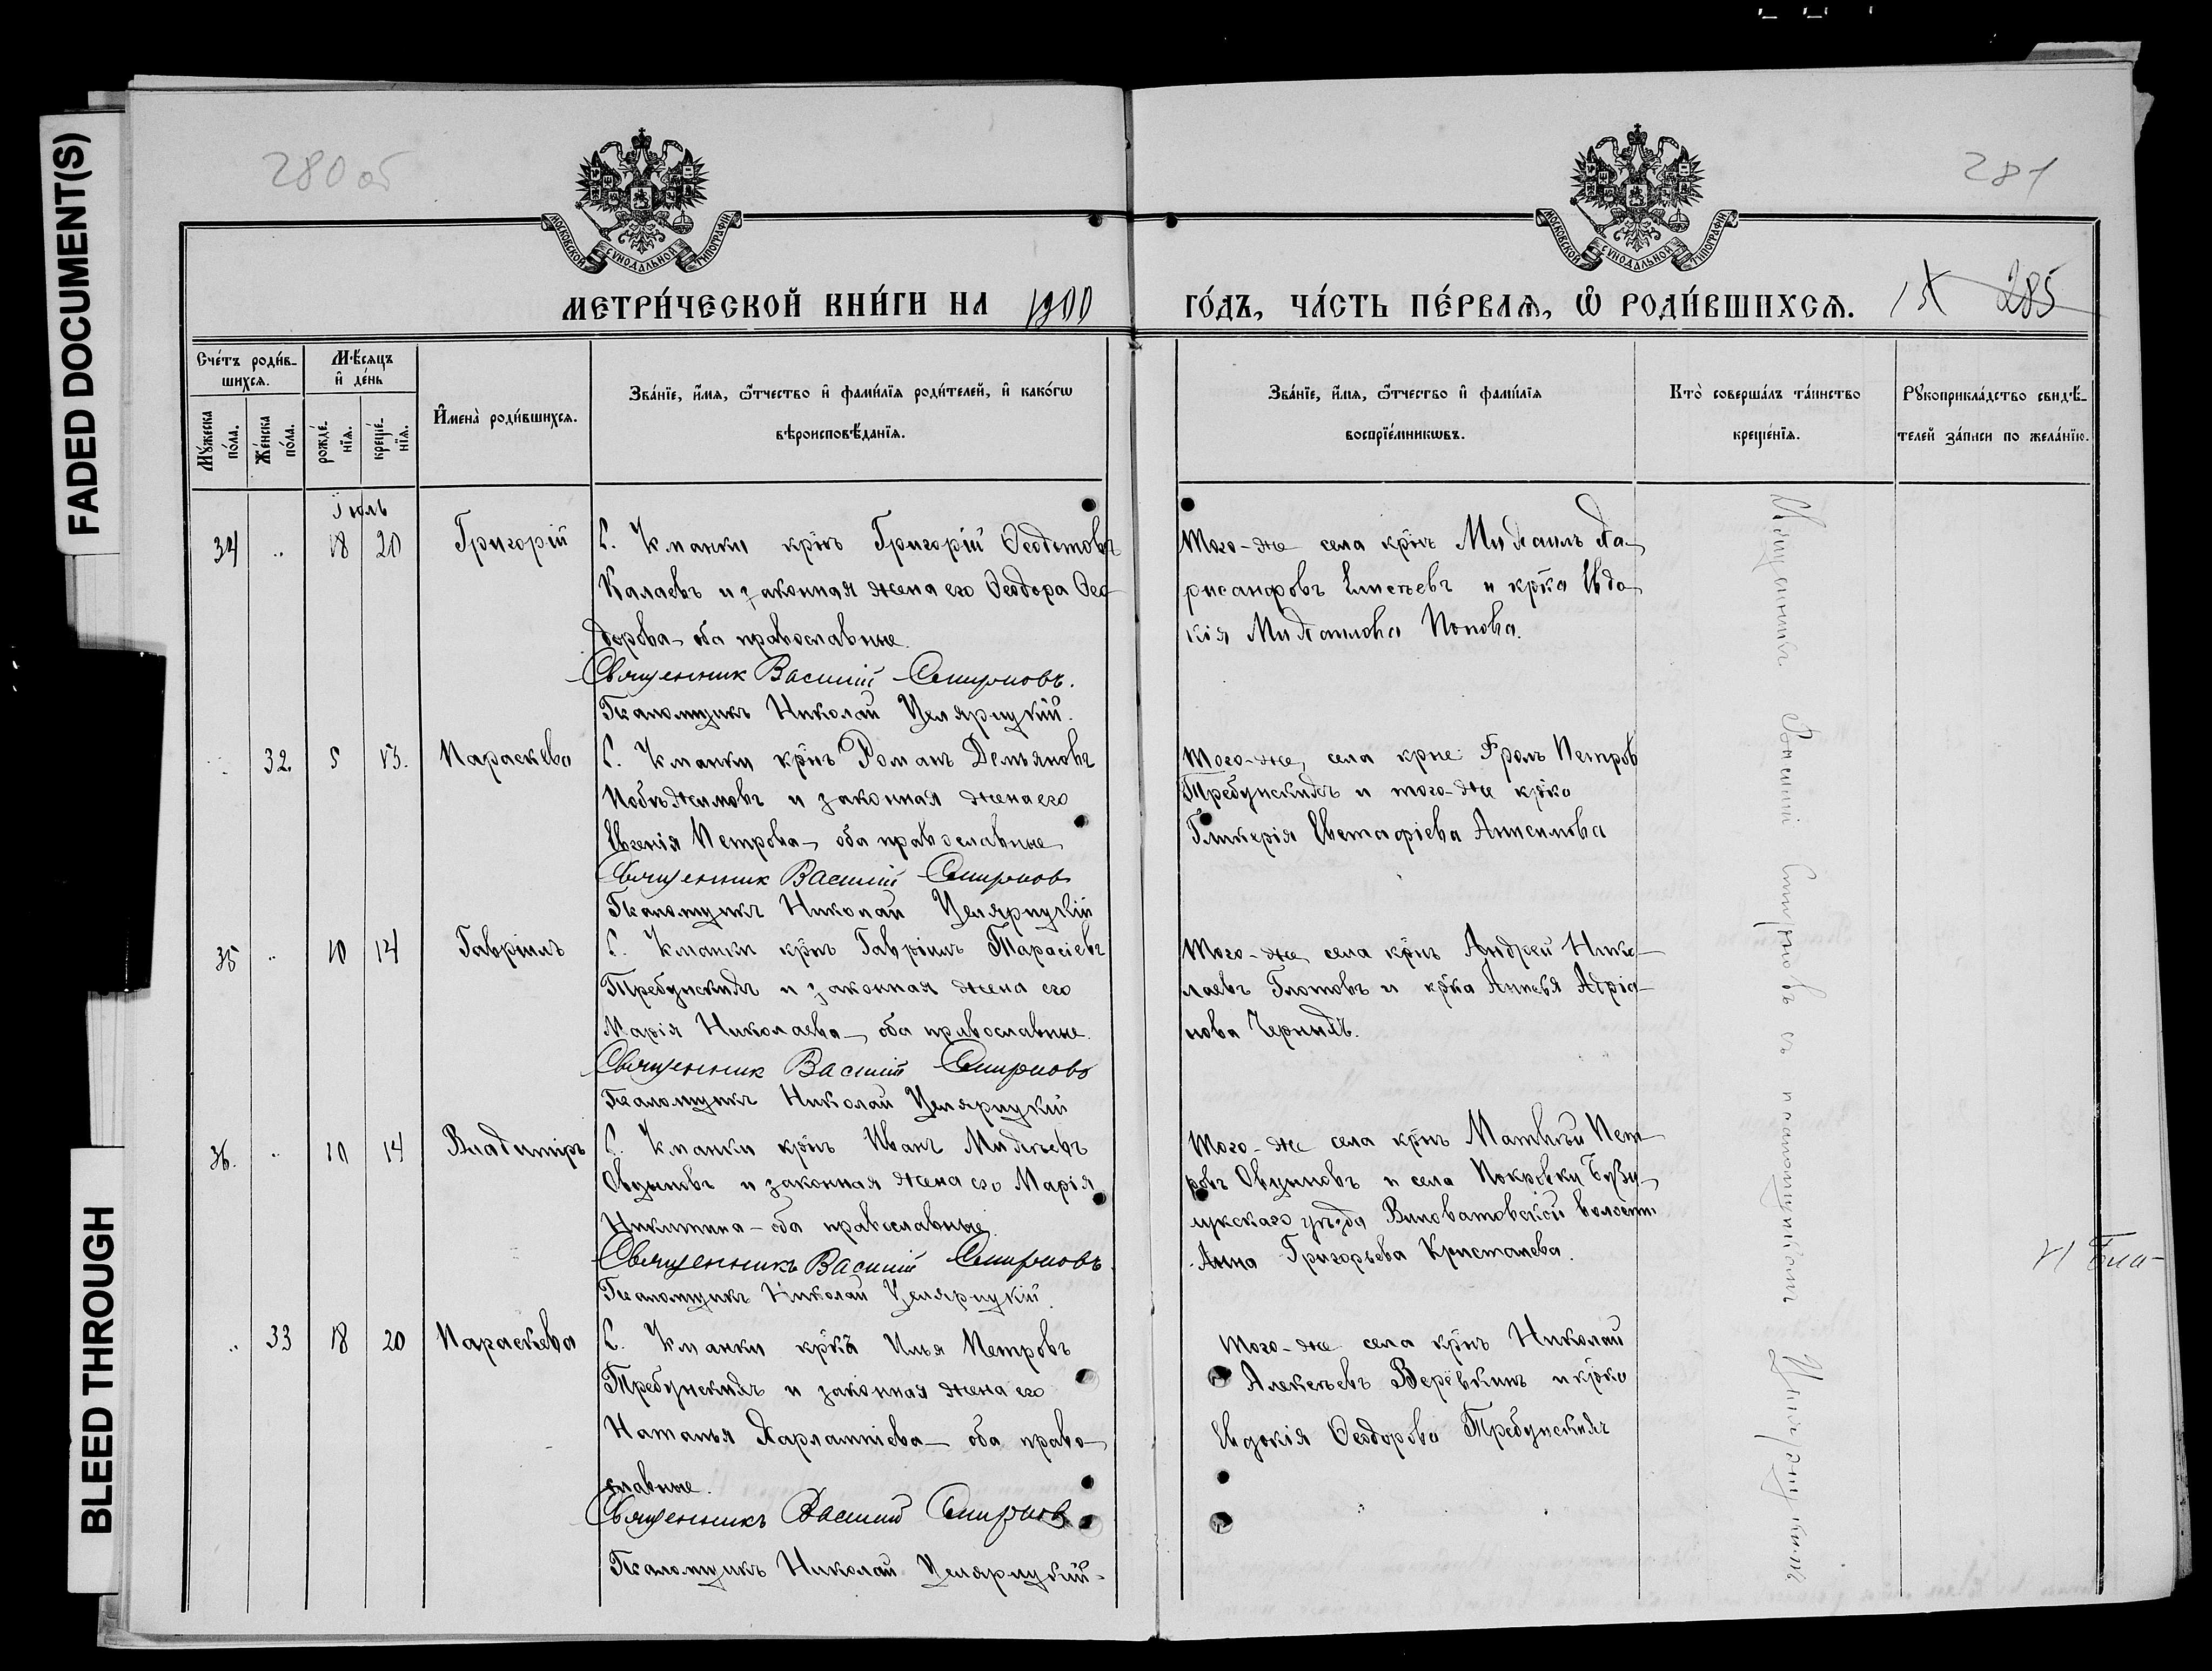 FADED DOCUMENT(S)
BLEED THROUGH
280 об
281
МОСКОВСКОЙ СѴНОДАЛЬНОЙ ТИПОГРАФІИ
МОСКОВСКОЙ СѴНОДАЛЬНОЙ ТИПОГРАФІИ
МЕТРИ́ЧЕСКОЙ КНИ́ГИ НА 1900
ГО́ДЪ, ЧА́СТЬ ПЕ́РВАѦ, Ѡ҆ РОДИ́ВШИХСѦ.
285
Сче́тъ роди́в-
шихсѧ.
Мѣ́сѧцъ
и҆ де́нь
Мꙋ́жеска по́ла.
Же́нска по́ла.
рожде́-
нїѧ.
креще́-
нїѧ.
И҆мена̀ роди́вшихсѧ.
Зва́нїе, и҆́мѧ, ѻ҆́тчество и҆ фами́лїѧ роди́телей, и҆ како́гѡ
вѣроисповѣ́данїѧ.
Зва́нїе, и҆́мѧ, ѻ҆́тчество и҆ фами́лїѧ
воспрїе́мникѡвъ.
Кто̀ соверша́лъ та́инство
креще́нїѧ.
Рꙋкоприкла́дство свидѣ́-
телей за́писи по жела́нїю.
Іюль
34 .. 18 20 Григорій
С. Кманки крнъ Григорій Ѳеодотовъ
Калаевъ и законная жена его Ѳеодора Ѳео-
дорова - оба православные.
Священник Василій Смирновъ.
Псаломщикъ Николай Целярицкій.
Того-же села крнъ Михаилъ Ха-
рисанфовъ Елисѣевъ и крка Евдо-
кія Михаилова Попова.
.. 32. 5 13. Параскева
С. Кманки крнъ Романъ Демьяновъ
Побѣжимовъ и законная жена его
Евгенія Петрова - оба православные
Священник Василій Смирнов
Псаломщикъ Николай Целярицкій
Того-же села крне Фролъ Петров
Требунскихъ и того-же крка
Гликерія Евстафіева Анисимова
35 .. 10 14 Гавріилъ
С. Кманки крнъ Гавріилъ Тарасіевъ
Требунскихъ и законная жена его
Марія Николаева - оба православные.
Священник Василій Смирновъ
Псаломщикъ Николай Целярицкій
Того-же села крнъ Андрей Нико-
лаевъ Глотовъ и крка Анисья Адріа-
нова Черныхъ.
36. .. 10 14 Владиміръ
С. Кманки крнъ Иванъ Михѣевъ
Овцыновъ и законная жена его Марія
Никитина - оба православные.
Священникъ Василій Смирновъ.
Псаломщикъ Николай Целярицкій.
Того-же села крнъ Матвѣй Пет-
ровъ Овцыновъ и села Покровки Бузу-
лукскаго уѣзда Виловатовской волости
Анна Григорьева Кристалева.
.. 33 18 20 Параскева
С. Кманки крка Илья Петровъ
Требунскихъ и законная жена его
Наталья Харлампіева - оба право-
славные.
Священникъ Василій Смирнов
Псаломщикъ Николай Целярицкій.
Того-же села крнъ Николай
Алексѣевъ Веревкинъ и крка
Евдокія Ѳеодорова Требунскихъ
Священникъ Василій Смирновъ съ псаломщикомъ Целярицкимъ